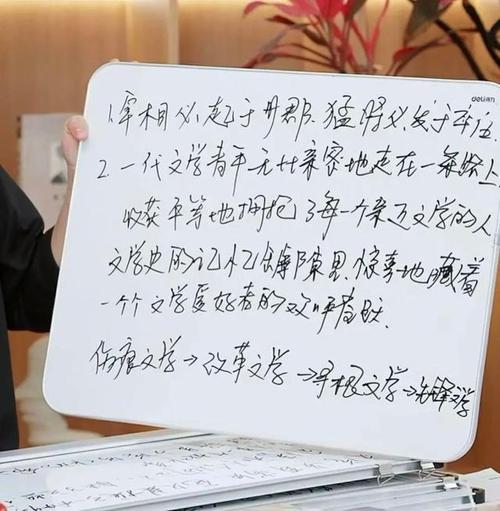 deli 得力
1.宰相必起于州郡.猛将必发于卒伍
2.一代文学青年无比亲密地走在一条路上
收获平等地拥抱了每一个亲近文学的人
文学史的记忆 隙里.惊喜地藏着
一个文学爱好者的欢呼雀跃.
伤痕文学→改革文学→寻根文学→先锋文学